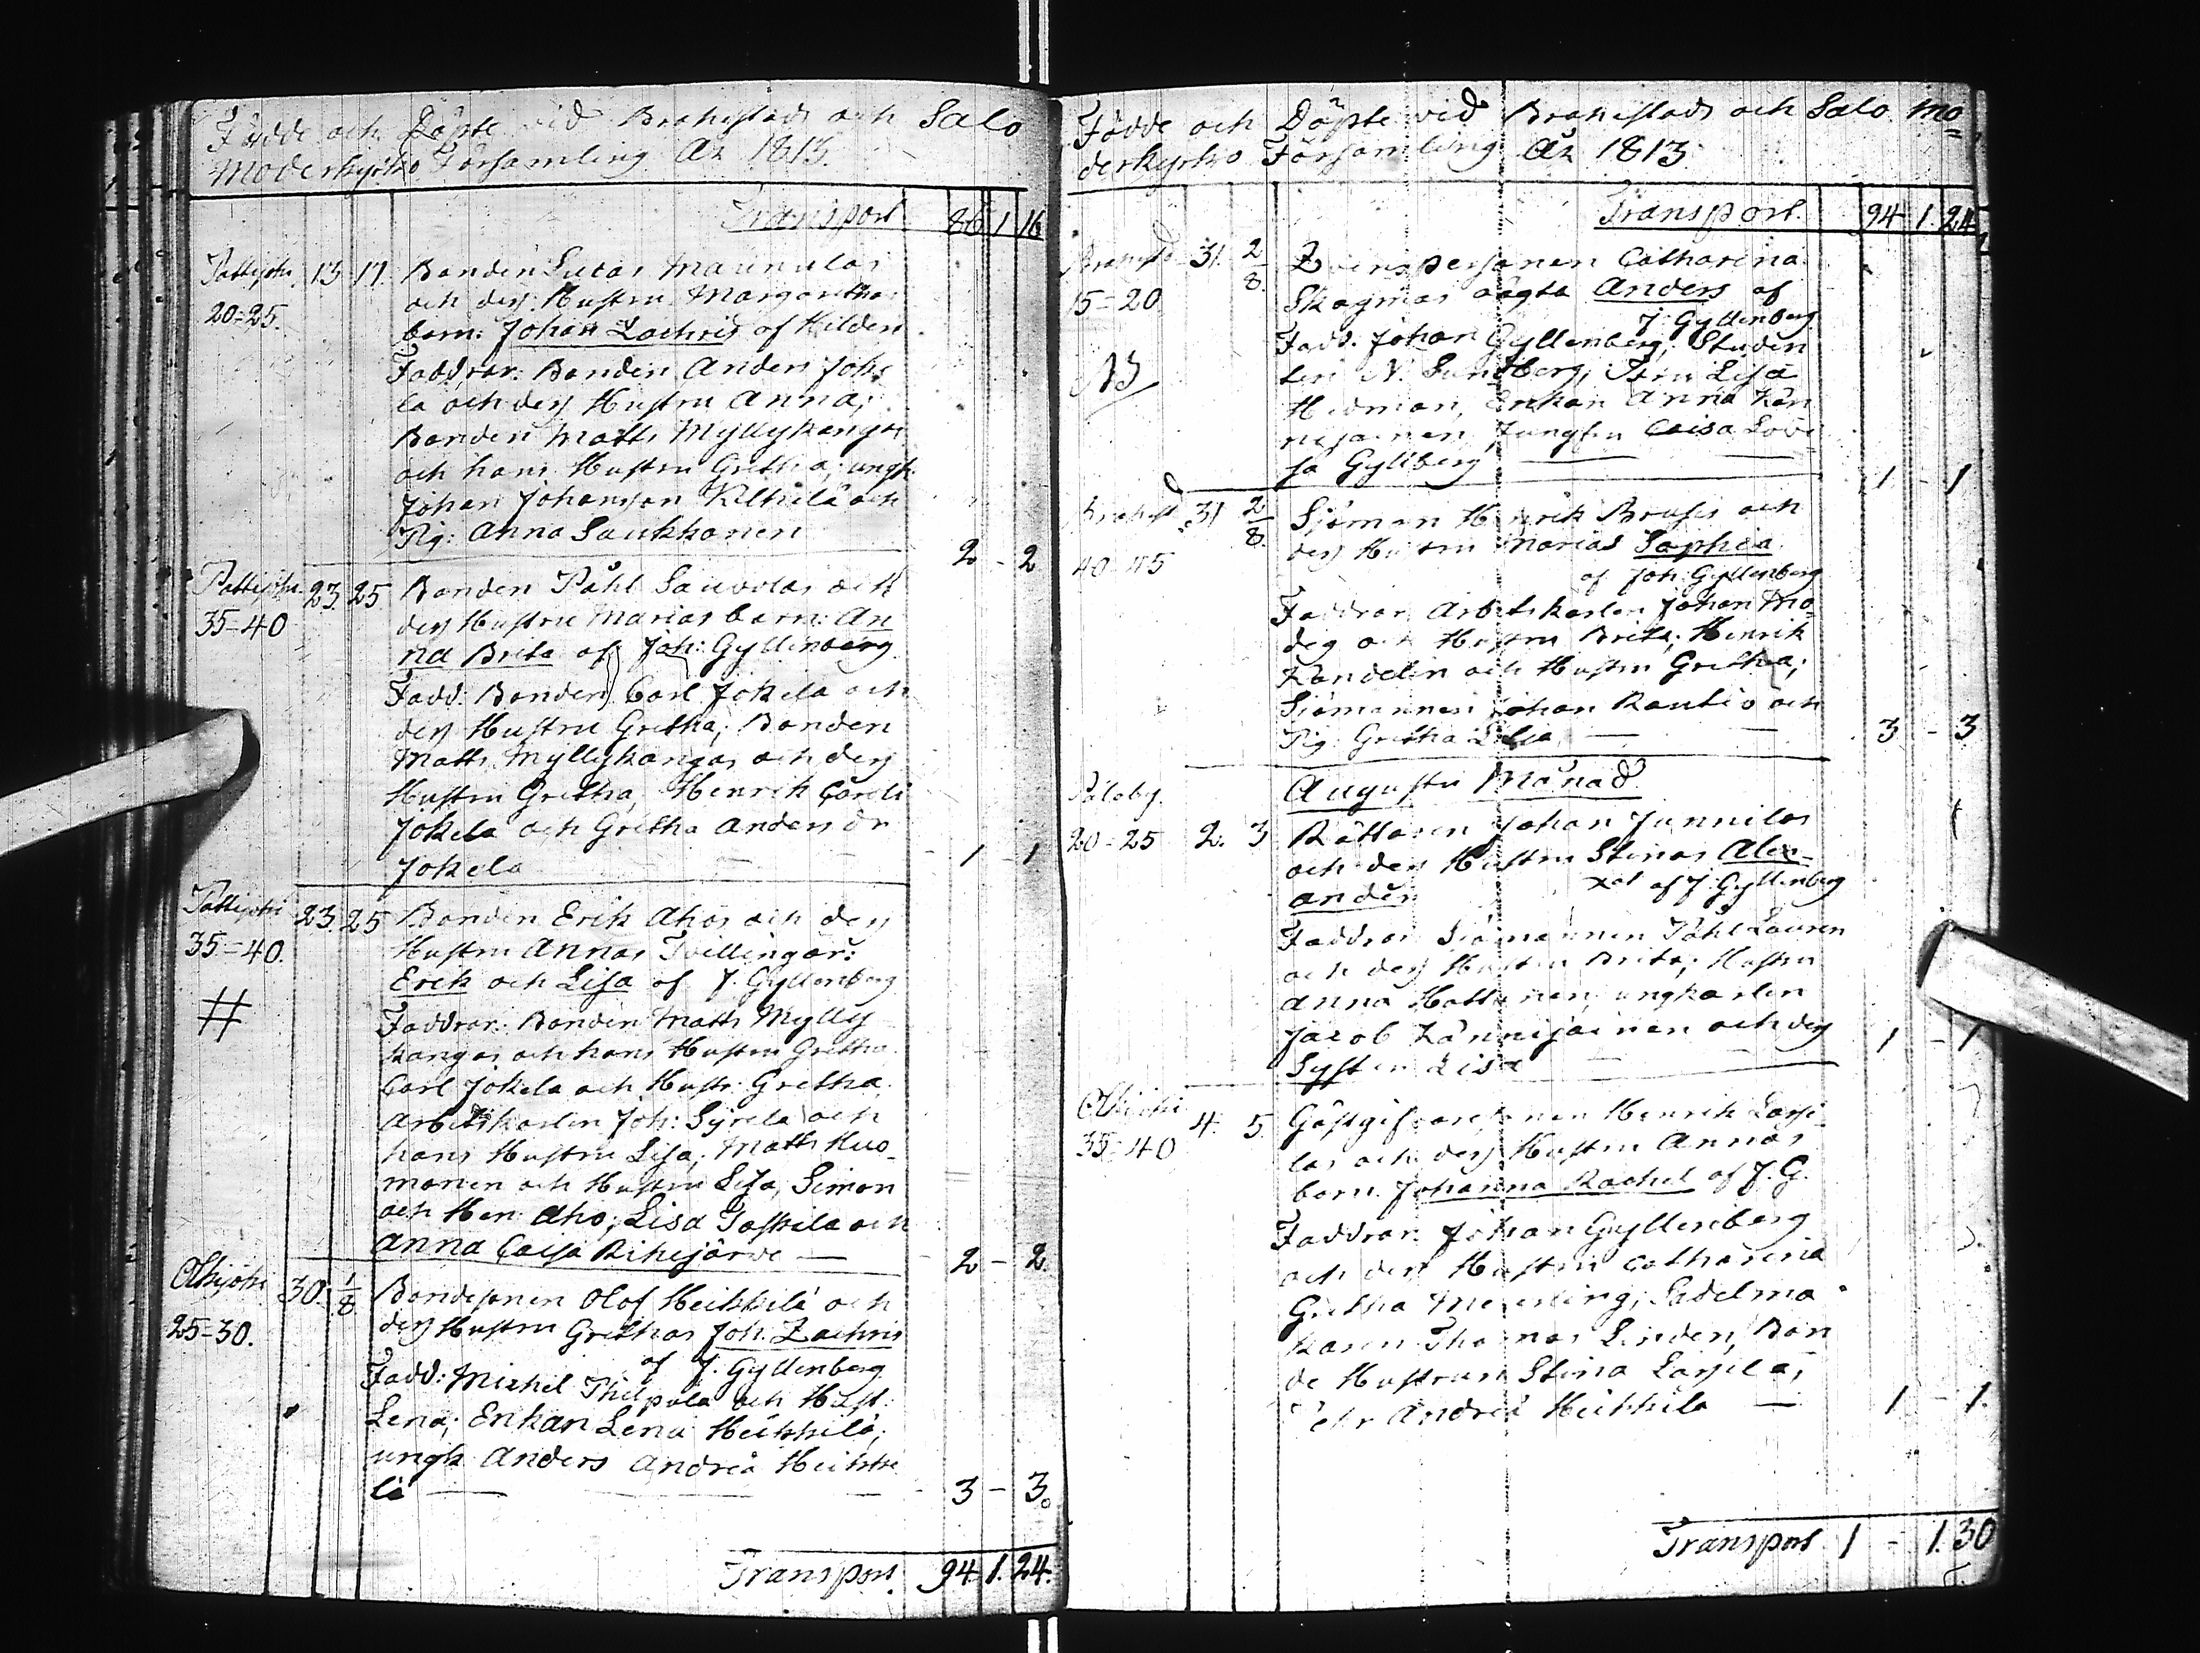 Födde och Döpte vid Brahestads och Salo
Moderkyrko Församling År 1813.
Transport 86 1 16
Pattijoki 13 17. Bonden Lucas Maunulas
20=25. och desz Hustru Margarethas
barn: Johan Zachris af Hildén
Faddrar: Bonden Anders Joke
la och desz Hustru Anna;
Bonden Matts Myllykangas
och hans Hustru Gretha; ungk.
Johan Johansson och
Pig: Anna Saukkonen 2 - 2
Pattijoki 23. 25. Bonden Påhl Sauvolas och
35=40 desz Hustru Marias barn: An
na Brita af Joh: Gyllenberg
Fadd: Bonden Carl Jokela och
desz Hustru Gretha; Bonden
Matts Myllykangas och desz
Hustru Gretha, Henrik Carls
Jokela och Gretha Anders dr
Jokela 1 - 1
Pattijoki 23. 25 Bonden Erik Ahos och desz
35=40. Hustru Annas Tvillingar:
Erik och Lisa af J. Gyllenberg
# Faddrar: Bonden Matts Mylly
kangas och hans Hustru Gretha
Carl Jokela och Hustr: Gretha
Arbetskarlen Joh: Syrela och
hans Hustru Lisa; Matts Huo-
monen och Hustru Lisa, Simon
och Hen: Aho; Lisa Taskila och
Anna Caisa Rihijärvi 2 - 2
Olkijoki 30. 1/8 Bondesonen Olof Heikkilä och
25=30. desz Hustru Grethas Joh. Zachris
af J. Gyllenberg
Fadd: Michel Philpula och Hust.
Lena; Enkan Lena Heikkilä;
ungk Anders Andreæ Heikki
lä 3 - 3.
Transport 94. 1. 24.
Födde och Döpte vid Brahestads och Salo mo=
derkyrko Församling År 1813
Transport. 94 1. 24
Brahestd 31. 2/8. Qvinspersonen Catharina
15=20 Skogmas oägta Anders af
J. Gyllenberg
Fadd: Johan Gyllenberg, Studen
NB ten N. Sundberg; Fru Lisa
Hedman, Enkan Anna Kän
nisoinen, Jungfru Caisa Lovi
sa Gyllberg 1 - 1
Brahest 31 2/8. Sjöman Henrik Brusis och
40=45 desz Hustru Marias Sophia
af Joh: Gyllenberg
Faddrar Arbetskarlen Johan Mo=
deg och Hustru Brita; Henrik
Kandelin och Hustru Gretha;
Sjömannen Johan Rautio och
Pig: Gretha 3 - 3
Augusti Månad
Paloby.
20=25 2. 3 Rättaren Johan Junnilas
och desz Hustru Stinas Alex-
ander xat af J: Gyllenberg
Faddrar Sjömannen Påhl Lauren
och desz Hustru Brita; Hustru
Anna ungkarlen
Jacob Kännisoinen och desz
Syster Lisa 1 - 1
Olkijoki 4. 5. Gästgifvaresonen Henrik Lassi-
35=40 las och desz Hustru Annas
barn Johanna Rachel af J. G.
Faddrar Johan Gyllenberg
och desz Hustru Catharina
Gretha Sadelma
karen Thomas Linden, Bon
de Hustrun Stina Lassila;
Pehr Andreæ Heikkilä 1 - 1.
Transport 1 - 1. 30